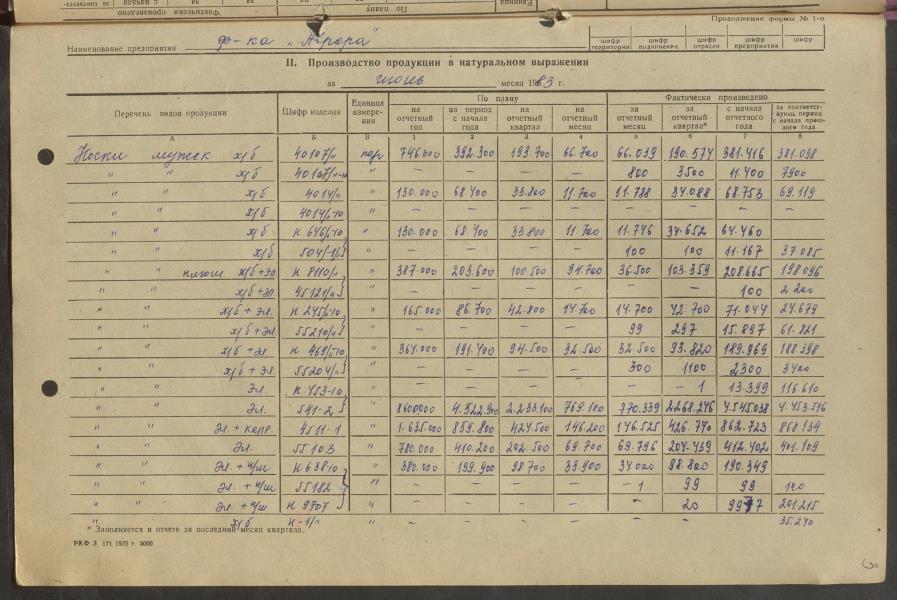 Продолжение формы № 1-п
Наименование предприятия ф-ка „Аврора"
шифр территории шифр подчинения шифр отрасли шифр предприятия шифр
II. Производство продукции в натуральном выражении
за июнь месяц 1983 г.
Перечень видов продукции Шифр изделия Единица измерения По плану Фактически произведено
на отчетный год на период с начала года на отчетный квартал на отчетный месяц за отчетный месяц за отчетный квартал* с начала отчетного года за соответств. период с начала прошлого года
А Б В 1 2 3 4 5 6 7 8
Носки мужск х/б 40107/н пар 746.000 392.300 193.700 66.700 66.039 190.574 381.416 381.098
" " х/б " — — — — 800 3500 11.400 7900
" " х/б 4014/н " 130.000 68.400 33.800 11.700 11.788 34.088 68.753 69.119
" " х/б " — — — — — — — —
" " х/б " 130.000 68.400 33.800 11.700 11.776 34.652 64.460
" " х/б " — — — — 100 100 11.167 37.085
" " плюш х/б+эл. н 8110/н " 387.000 203.600 100.500 34.700 36.500 103.359 208.665 198.096
" " х/б+эл. " — — — — — — 100 2200
" " х/б + эл. " 165.000 86.700 42.800 14.700 14.700 42.700 71.044 24.679
" " х/б + эл. " — — — — 99 297 15.897 61.821
" " х/б + эл " 364.000 191.400 94.500 32.500 32.500 93.820 189.969 188.398
" " х/б + эл. " — — — — 300 1100 2300 3400
" " эл. н 453-10 " — — — — — 1 13.399 116.610
" " эл. 541-2 " 8600000 4.522.900 2.233.100 769.100 770.339 2268.246 4.545.038 4.453.516
" " эл + капр. 4511-1 " 1.635.000 859.800 424.500 146.200 146.525 426.740 862.723 868.134
" " эл. 55103 " 780.000 410.200 202.500 69.700 69.796 204.439 412.402 401.109
" " эл. + п/ш н 63810 " 380.000 199.900 98.700 33.900 34000 98.800 190.349
" " эл. + п/ш 55182 " — — — — 1 99 99 100
" " эл + п/ш н 9707 " — — — — — 20 9977 201.215
" х/б н-1/н " — — — — — — 35.240
* Заполняется в отчете за последний месяц квартала.
РКФ З. 171 1975 г. 5000